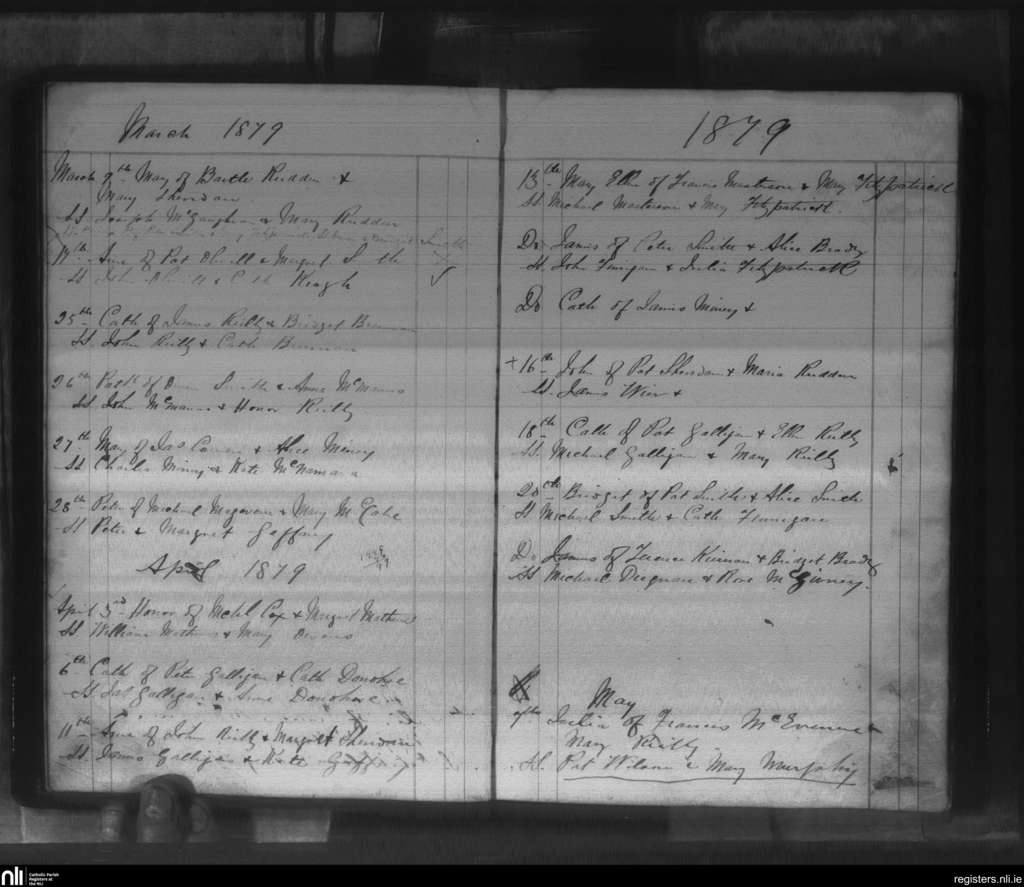 March 1879
March 9th Mary of Bartle Rudden &
Mary Sheridan
SS Joseph McGaughran & Mary Rudden
17th Anne of Pat & Margret Smith
SS John & Cath Keogh
25th Cath of James Reilly & Bridget Brennan
SS John Reilly & Cath Brennan
26th Patk of Owen Smith & Anne McManus
SS John McManus & Honor Reilly
27th Mary of Jas & Alice Miney
SS Charles Miney & Kate McNamara
28th Peter of Michael Magovern & Mary McCabe
SS Peter & Margret Gaffney
April 1879
April 3rd Honor of Michl Cox & Margret Mathews
SS William Mathews & Mary
6th Cath of Peter Galligan & Cath Donohoe
SS Jas Galligan & Anne Donohoe
11th Anne of John Reilly & Margret Sheridan
SS James Galligan & Kate Gaffney
1879
13th Mary Ellen of Francis Masterson & Mary Fitzpatrick
SS Michael Masterson & Mary Fitzpatrick
Do James of Peter Smith & Alice Brady
SS John Finigan & Julia Fitzpatrick
Do Cath of James Miney &
+ 16th John of Pat Sheridan & Maria Rudden
SS James Wier &
18th Cath of Pat Galligan & Ellen Reilly
SS Michael Galligan & Mary Reilly
20th Bridget of Pat Smith & Alice Smith
SS Michael Smith & Cath Finnegan
Do James of Terence Kiernan & Bridget Brady
SS Michael Duignan & Rose McGivney
May
7th Julia of Francis McEvenue &
Mary Reilly
SS Pat Wilson & Mary Murphy
nli
Catholic Parish
Registers at
the NLI
registers.nli.ie